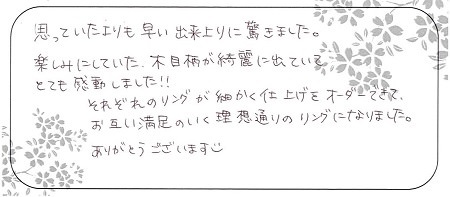 思っていたよりも早い出来上りに驚きました。
楽しみにしていた木目柄が綺麗に出ている
とても感動しました!!
それぞれのリングが細かく仕上げをオーダーできて、
お互い満足のいく理想通りのリングになりました。
ありがとうございます